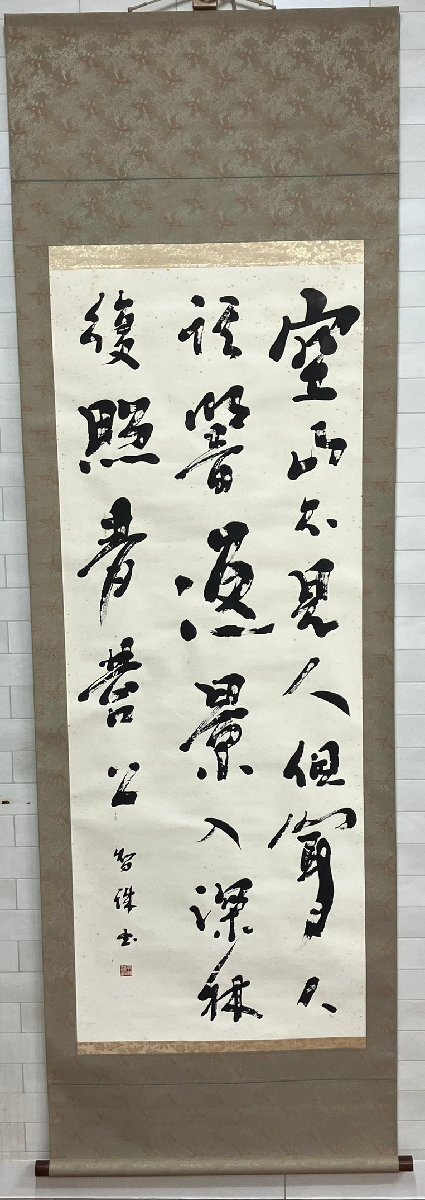 空山不見人但聞人
語響返景入深林
復照青苔上
智侏书